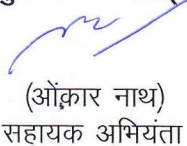 (ओंकार नाथ)
सहायक अभियंता